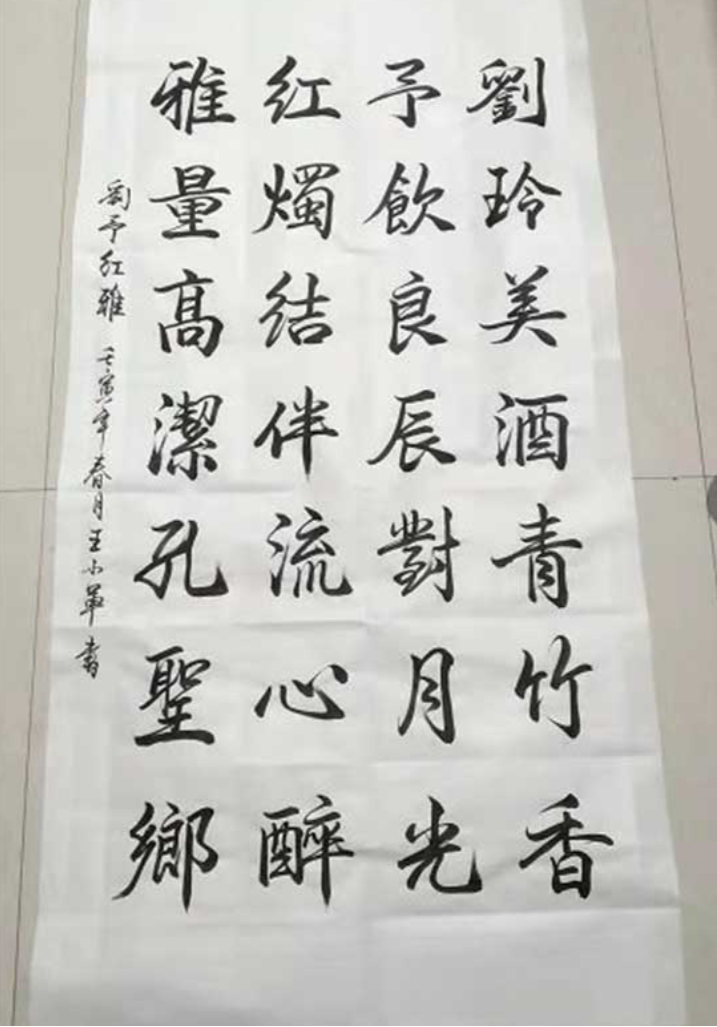 劉玲美酒青竹香
予飲良辰對月光
紅燭結伴流心醉
雅量高潔孔聖鄉
劉予紅雅 壬寅年春月王小軍書